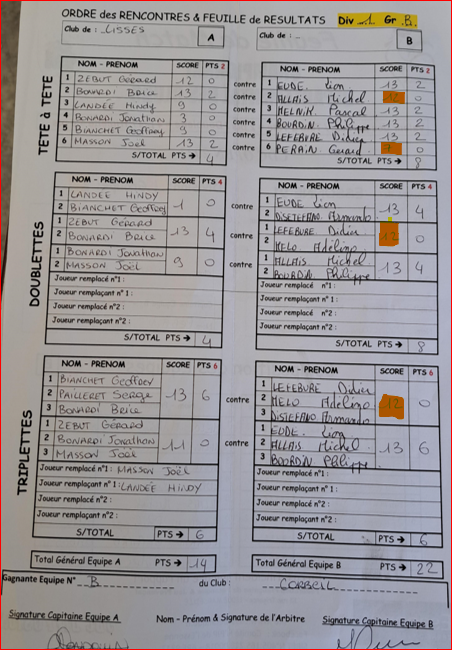 ORDRE des RENCONTRES & FEUILLE de RESULTATS Div 1 Gr B.
Club de : LISSES A Club de : B
TETE à TETE
NOM - PRENOM SCORE PTS 2 NOM - PRENOM SCORE PTS 2
1 ZEBUT Gérard 12 0 contre 1 EUDE. Lion 13 2
2 BONARDI Brice 13 2 contre 2 ALLAIS Michel 12 0
3 LANDEE Hindy 9 0 contre 3 Pascal 13 2
4 BONARDI Jonathan 3 0 contre 4 BOURDIN Philippe 13 2
5 BIANCHET Geoffroy 9 0 contre 5 LEFEBURE Didier 13 2
6 MASSON Joël 13 2 contre 6 PERAIN Gérard 7 0
S/TOTAL PTS → 4 S/TOTAL PTS → 8
DOUBLETTES
NOM - PRENOM SCORE PTS 4 NOM - PRENOM SCORE PTS 4
1 LANDEE HINDY 1 EUDE Lion
2 BIANCHET Geoffroy 1 0 contre 2 DISTEFANO Armando 13 4
1 ZEBUT Gérard 1 LEFEBURE Didier
2 BONARDI Brice 13 4 contre 2 MELO Adelino 12 0
1 BONARDI Jonathan 1 ALLAIS Michel
2 MASSON Joël 9 0 contre 2 BOURDIN Philippe 13 4
Joueur remplacé n°1 : Joueur remplacé n°1 :
Joueur remplaçant n° 1 : Joueur remplaçant n° 1 :
Joueur remplacé n°2 : Joueur remplacé n°2 :
Joueur remplaçant n°2 : Joueur remplaçant n°2 :
S/TOTAL PTS → 4 S/TOTAL PTS → 8
TRIPLETTES
NOM - PRENOM SCORE PTS 6 NOM - PRENOM SCORE PTS 6
1 BIANCHET Geoffroy 1 LEFEBURE Didier
2 PAILLERET Serge 13 6 contre 2 MELO Adelino 12 0
3 BONARDI Brice 3 DISTEFANO Armando
1 ZEBUT Gérard 1 EUDE. Lion
2 BONARDI Jonathan 11 0 contre 2 ALLAIS Michel 13 6
3 MASSON Joël 3 BOURDIN Philippe
Joueur remplacé n°1 : MASSON Joël Joueur remplacé n°1 :
Joueur remplaçant n° 1 : LANDÉE HINDY Joueur remplaçant n° 1 :
Joueur remplacé n°2 : Joueur remplacé n°2 :
Joueur remplaçant n°2 : Joueur remplaçant n°2 :
S/TOTAL PTS → 6 S/TOTAL PTS → 6
Total Général Equipe A PTS → 14 Total Général Equipe B PTS → 22
Gagnante Equipe N° B du Club : CORBEIL
Signature Capitaine Equipe A Nom - Prénom & Signature de l'Arbitre Signature Capitaine Equipe B